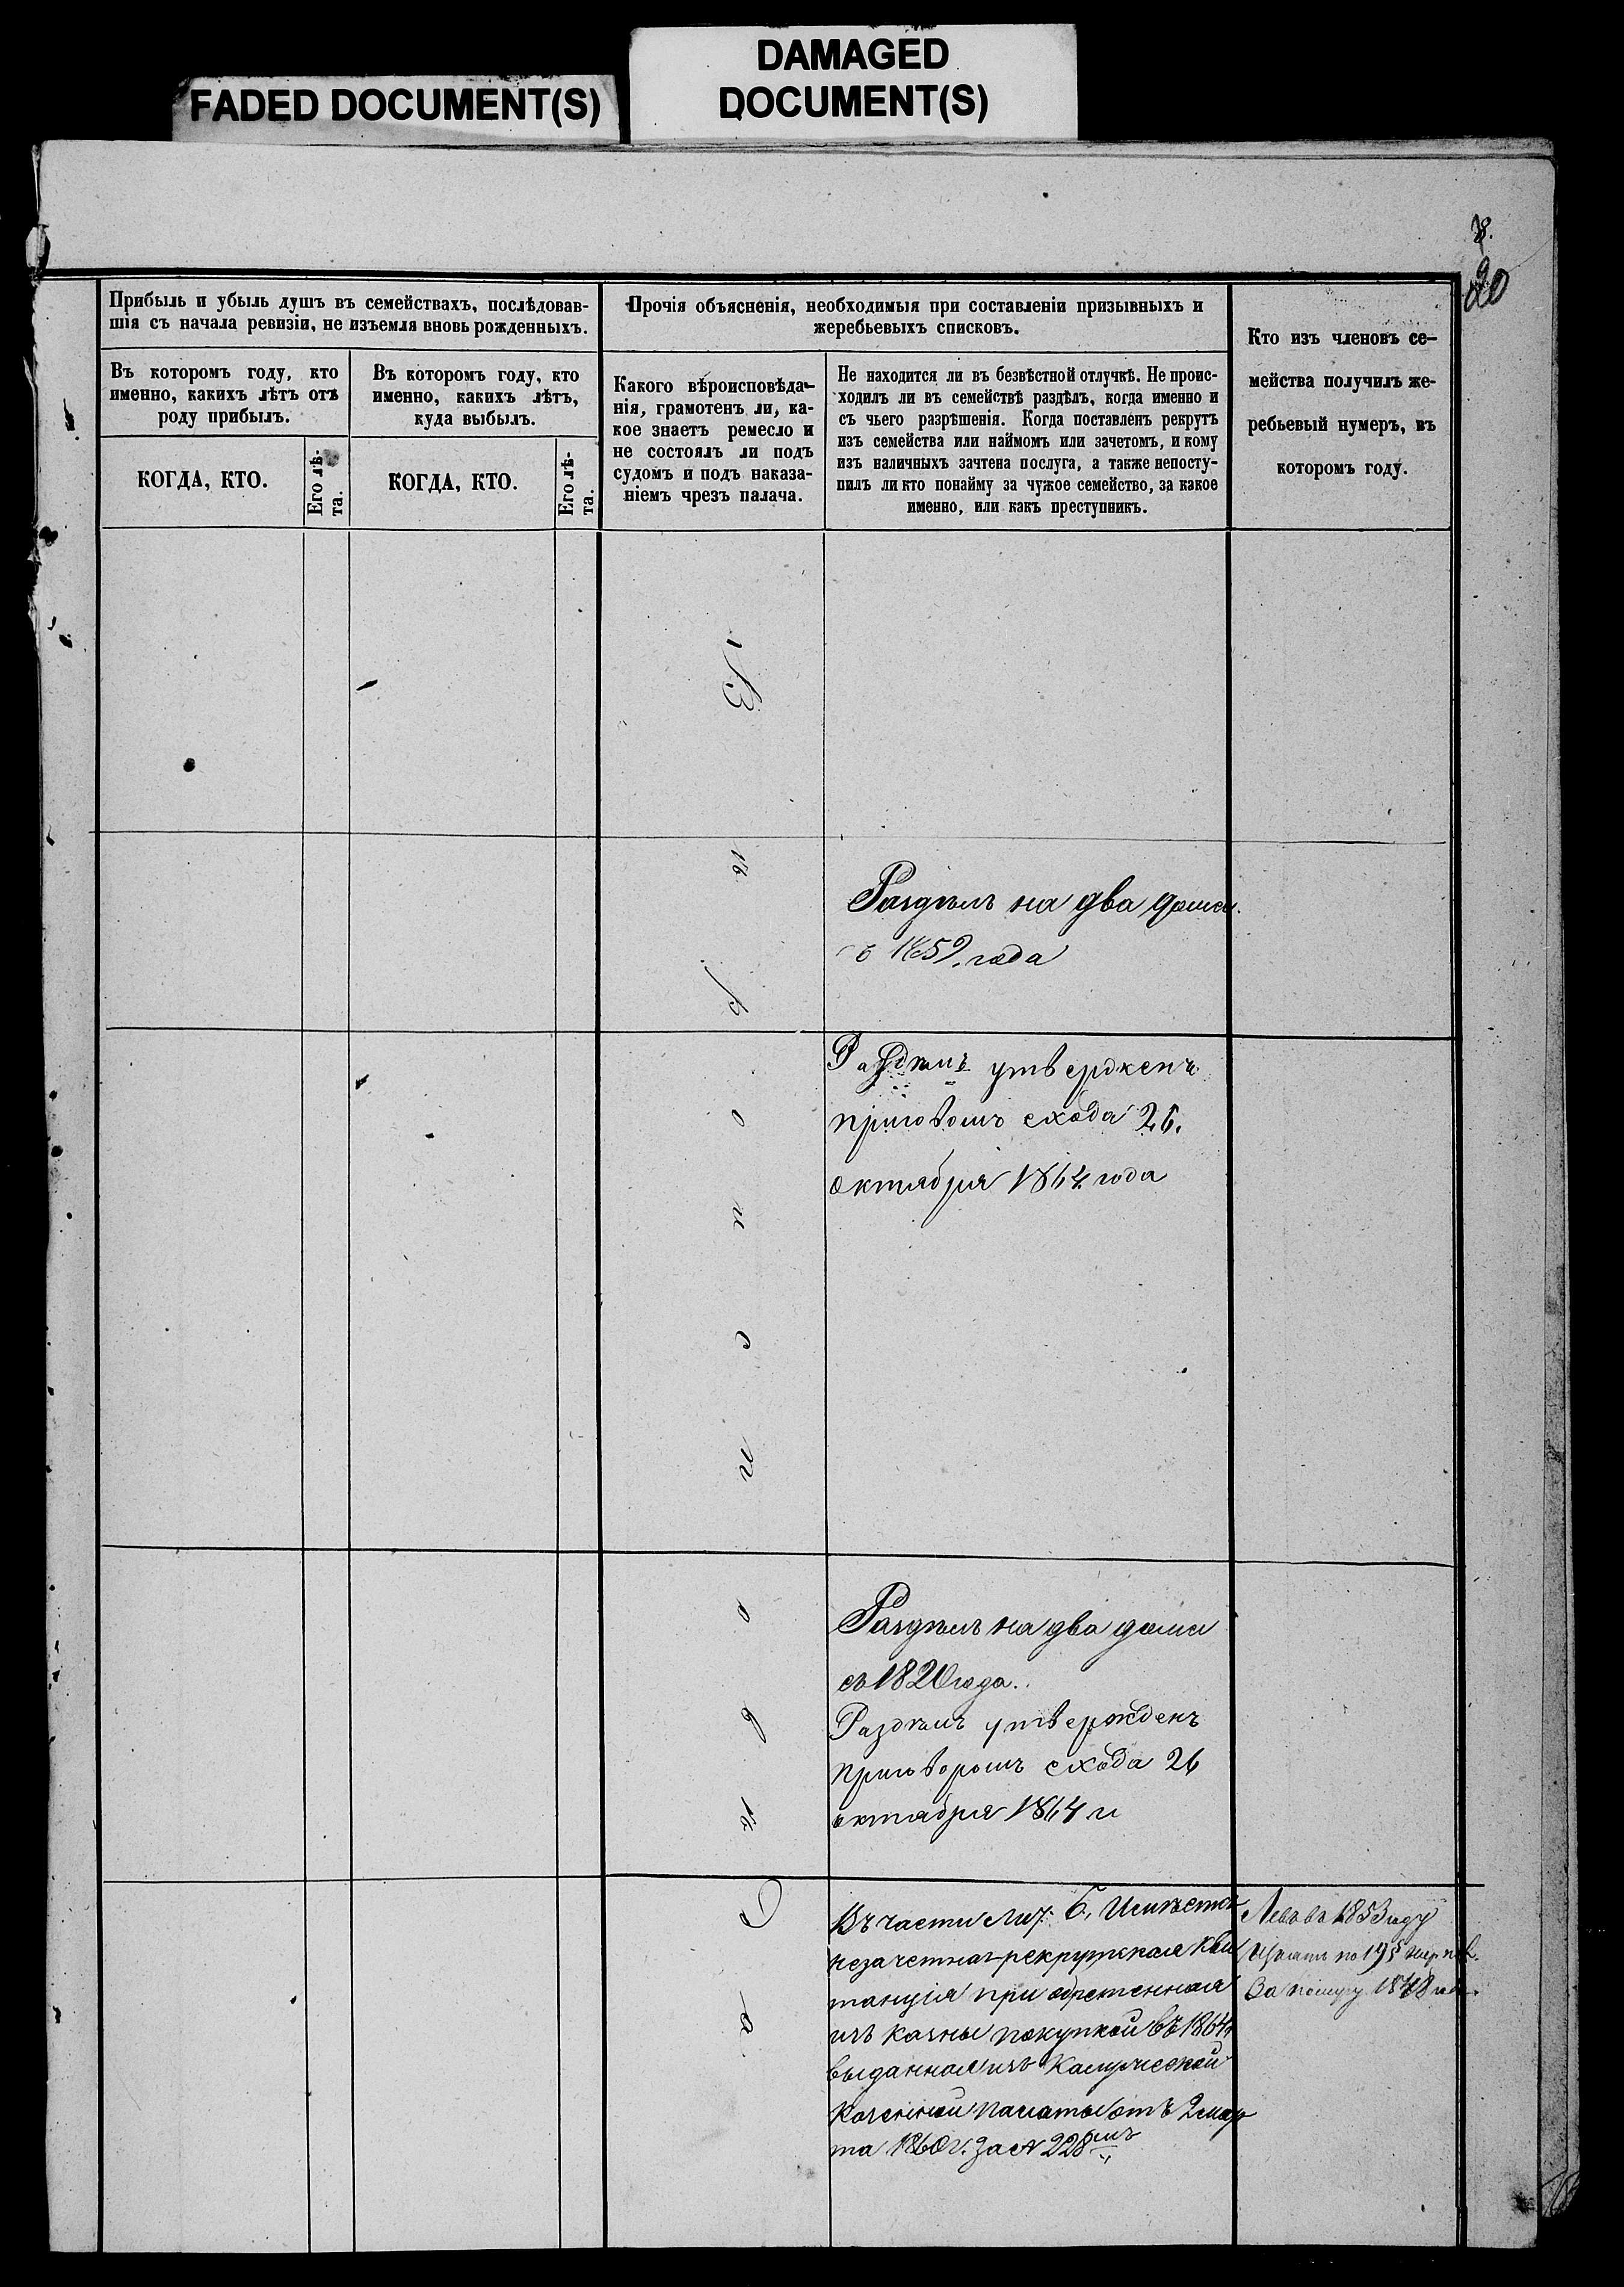 FADED DOCUMENT(S)
DAMAGED
DOCUMENT(S)
20
Прибыль и убыль душъ въ семействахъ, послѣдовав-
шія съ начала ревизіи, не изъемля вновь рожденныхъ.
Въ которомъ году, кто
именно, какихъ лѣтъ отъ
роду прибылъ.
КОГДА, КТО.
Его лѣ-
та.
Въ которомъ году, кто
именно, какихъ лѣтъ,
куда выбылъ.
КОГДА, КТО.
Его лѣ-
та.
Прочія объясненія, необходимыя при составленіи призывныхъ и
жеребьевыхъ списковъ.
Какого вѣроисповѣда-
нія, грамотенъ ли, ка-
кое знаетъ ремесло и
не состоялъ ли подъ
судомъ и подъ наказа-
ніемъ чрезъ палача.
Не находится ли въ безвѣстной отлучкѣ. Не проис-
ходилъ ли въ семействѣ раздѣлъ, когда именно и
съ чьего разрѣшенія. Когда поставленъ рекрутъ
изъ семейства или наймомъ или зачетомъ, и кому
изъ наличныхъ зачтена послуга, а также непосту-
пилъ ли кто понайму за чужое семейство, за какое
именно, или какъ преступникъ.
Кто изъ членовъ се-
мейства получилъ же-
ребьевый нумеръ, въ
которомъ году.
Раздѣлъ на два дома
съ 1859. года
Раздѣлъ утверженъ
приговомъ схода 26.
октября 1864 года
Раздѣлъ на два дома
съ 1820 года.
Раздѣлъ утвержденъ
приговоромъ схода 26
октября 1864 г
Въ части лит. Б, Имѣется
незачетная рекрутская кви
танція приобретенная
изъ казны покупкой въ 1864
выданная изъ
Казенной палаты отъ 2 мар
та 1860 г. за № 228мъ
Левъ въ 1853 году
по 195
За 1848
Православнаго